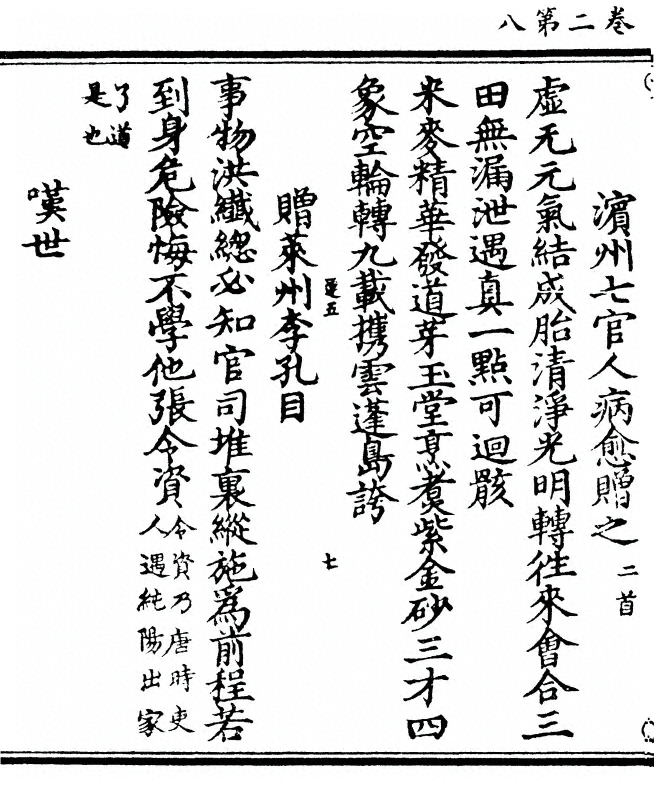 卷二第八
濵州七官人病愈贈之二首
虛无元氣結成胎清淨光明轉徃來會合三
田無漏泄遇真一點可迴骸
米麥精華發道芽玉堂烹煑紫金砂三才四
象空輪轉九載攜雲蓬島誇
蓬五
七
贈萊州李孔目
事物洪纖緫必知官司堆裏縱施爲前程若
到身危險悔不學他張令資令資乃唐時吏
人遇純陽出家
了道
是也
嘆世